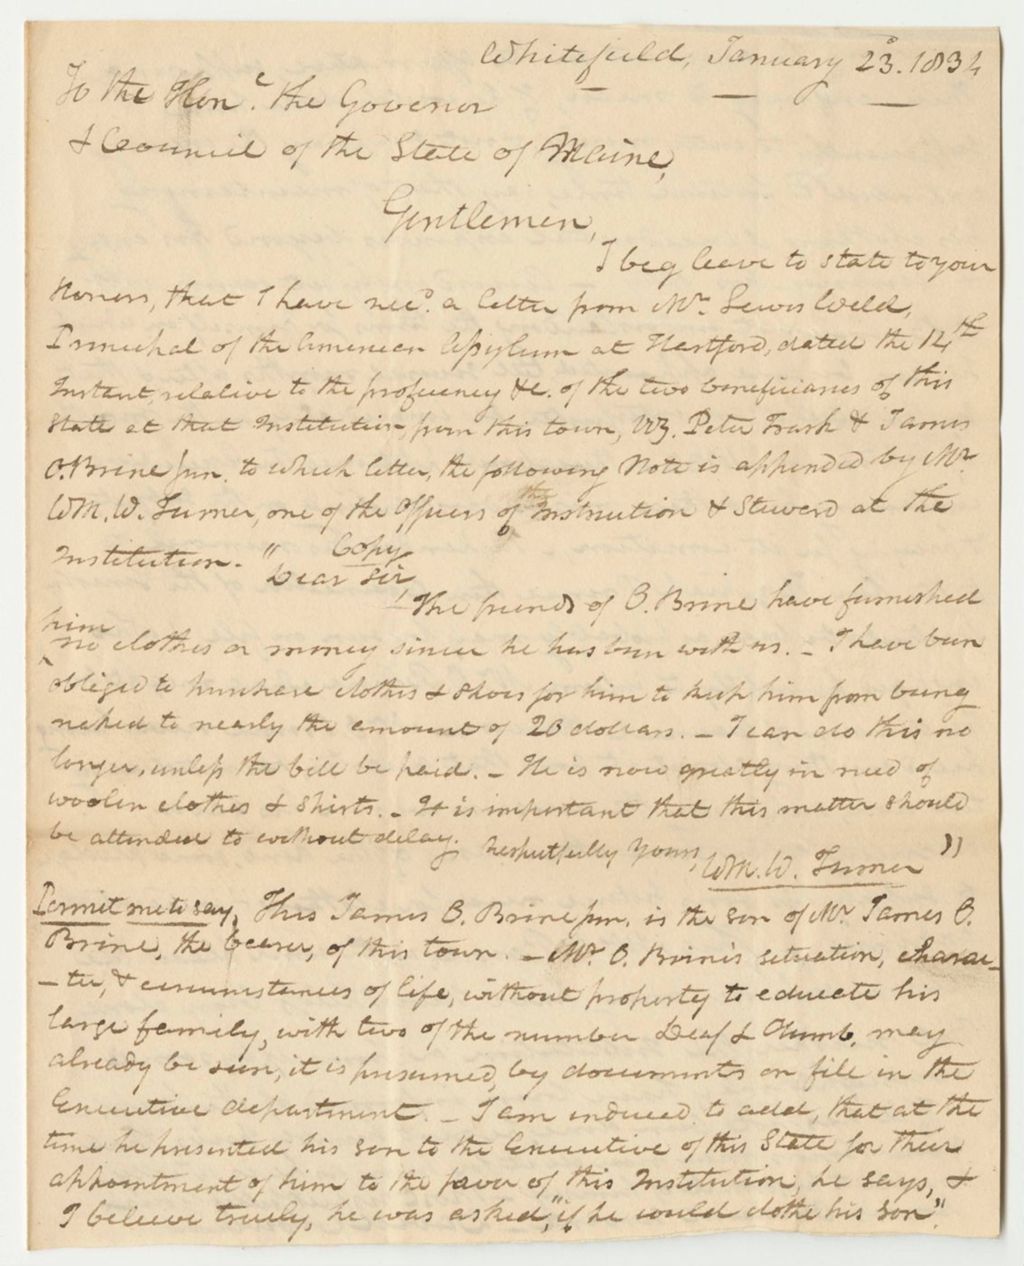 Whitefield, January 23. 1834
To the Hon.e the Govenor
& Council of the State of Maine,
Gentlemen,
I beg leave to state to your
Honors, that I have recd. a letter from Mr. Lewis Weld,
Principal of the American Assylum at Hartford, dated the 14th
Instant, relative to the proficiency &c. of the two beneficiaries of this
State at that Institution, from this town, Viz. Peter Trask & James
O.Brine jun. to which letter, the following Note is appended by Mr.
WM. W. Turner, one of the Officers of the Instruction & Steward at the
Institution. " Copy
Dear Sir,
The friends of O. Brine have furnished
him
no clothes or money since he has been with us. – I have been
obliged to purchase clothes & shoes for him to keep him from being
naked to nearly the amount of 20 dollars. – I can do this no
longer, unless the bill be paid. – He is now greatly in need of
woolen clothes & shirts. – It is important that this matter should
be attended to without delay. Respectfully yours, WM. W. Turner "
Permit me to say, This James O. Brine jun. is the son of Mr. James O.
Brine, the bearer, of this town. – Mr. O. Brine's situation, charac-
-ter, & circumstances of life, without property to educate his
large family, with two of the number Deaf & Dumb, may
already be seen, it is presumed, by documents on file in the
Executive department. – I am induced to add, that at the
time he presented his son to the Executive of this State for their
appointment of him to the favor of this Institution, he says, &
I believe truely, he was asked, "if he would clothe his son".